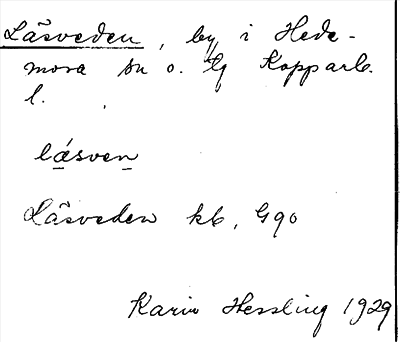 Läsveden, by i Hede-
mora sn o. tg Kopparb.
l.
lǽsven
Läsveden kb, G90
Karin Hessling 1929